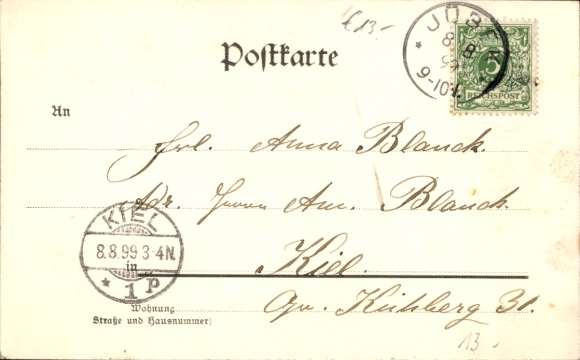 €13.-
Postkarte
JÜB
8 8 99
9-10V.
5
REICHSPOST
An
Frl. Anna Blanck.
Adr. Herrn Am. Blanck.
KIEL
8.8.99 3-4N.
* 1 p
in Kiel.
Wohnung
(Straße und Hausnummer)
Gr. Kuhberg 31.
13.-